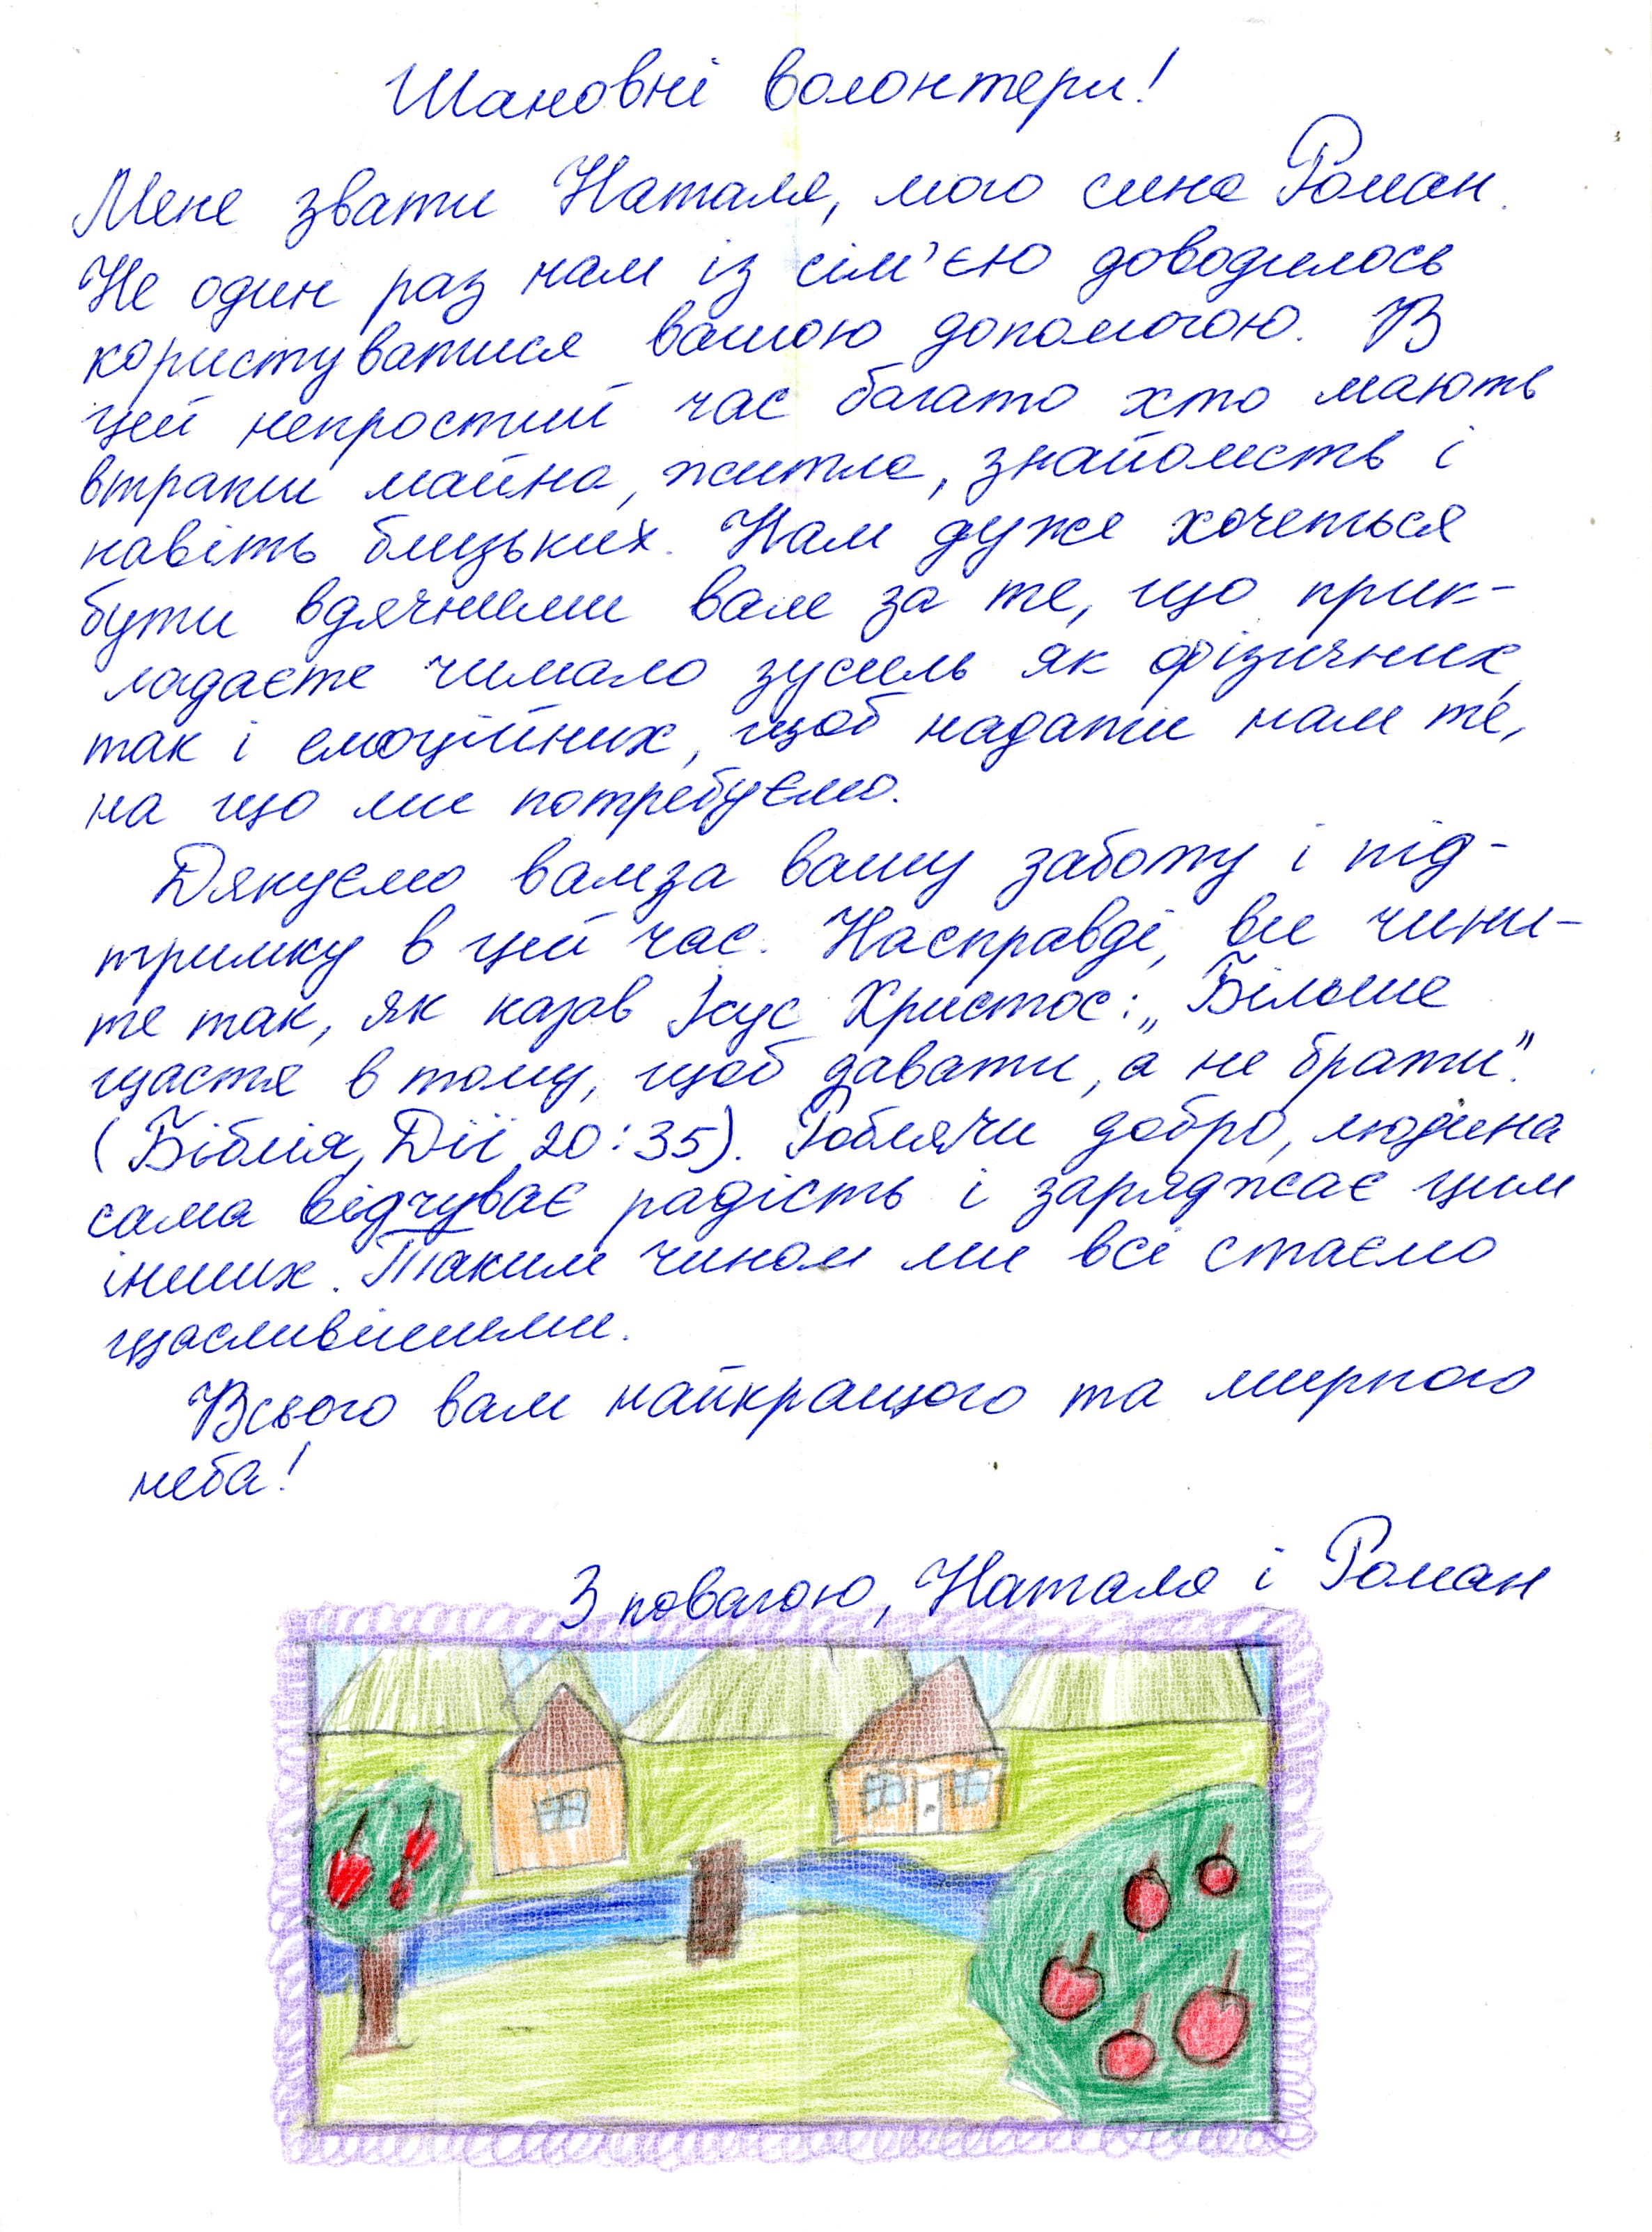 Шановні волонтери!
Мене звати Наталя, мого сина Роман.
Не один раз нам із сім'єю доводилось
користуватися вашою допомогою. В
цей непростий час багато хто мають
втрати майна, житла, знайомств і
навіть близьких. Нам дуже хочеться
бути вдячними вам за те, що прик-
ладаєте чимало зусиль як фізичних,
так і емоційних, щоб надати нам те,
на що ми потребуємо.
Дякуємо вам за вашу заботу і під-
тримку в цей час. Насправді, ви чини-
те так, як казав Ісус Христос: „Більше
щастя в тому, щоб давати, а не брати".
(Біблія, Дії 20:35). Роблячи добро, людина
сама відчуває радість і заряджає цим
інших. Таким чином ми всі стаємо
щасливішими.
Всього вам найкращого та мирного
неба!
З повагою, Наталя і Роман